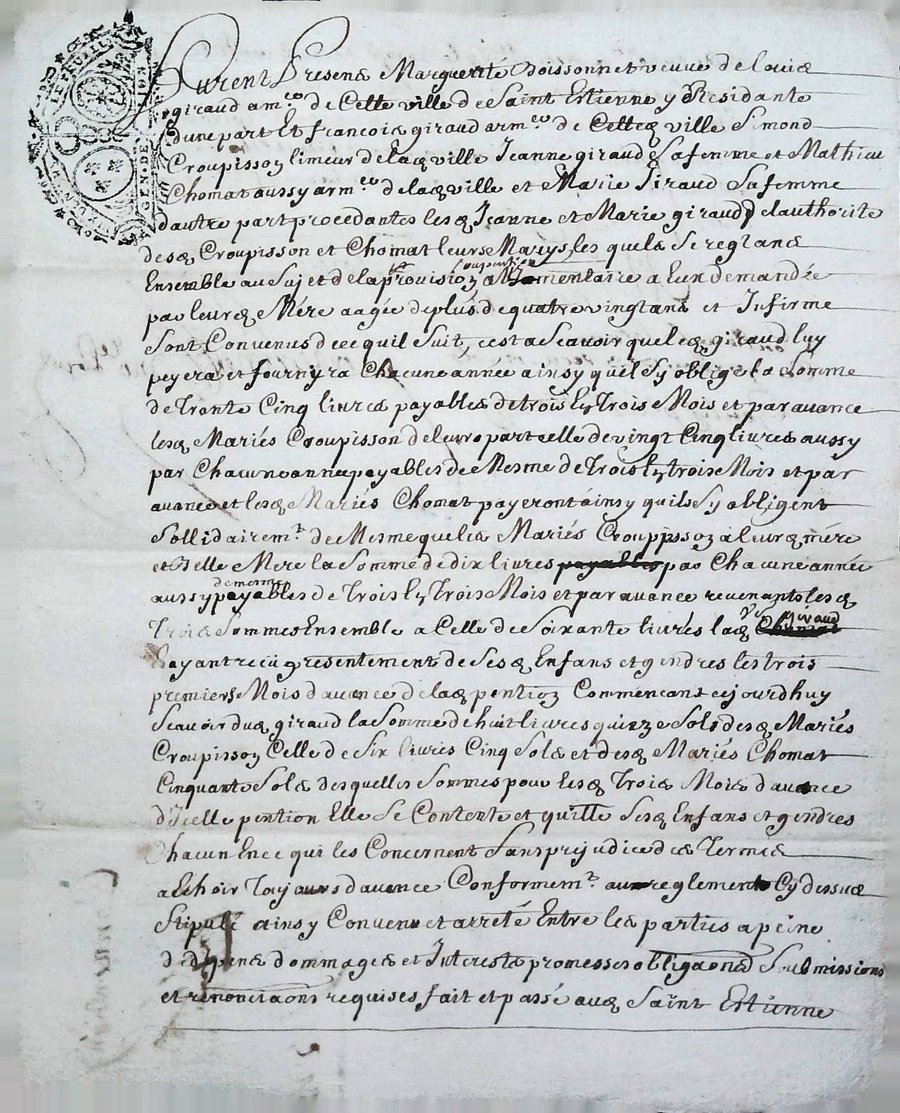 furent Presens Marguerite Boissonnet veuve de Louis
giraud arm.er de Cette ville de Saint Estienne y Residante
dune part Et francois giraud arm.er de Cette ville Simond
Croupisson limeur de lad ville Jeanne giraud Sa femme et Mathieu
Chomat aussy arm.er de lad ville et Marie Giraud Sa femme
dautre part procedantes lesd Jeanne et Marie giraud de lauthorité
desd Croupisson et Chomat leurs Marys, les quels Se reglans
Ensemble au Sujet de la provision alimentaire a Eux demandée
par leurd Mére aagée de plus de quatre vingt ans et Infirme
Sont Convenus de ce quil Suit, cest a Scavoir que led giraud luy
peyera et fournyra Chacune année ainsy quil Sy oblige la Somme
de Trante Cinq livres payables de trois En Trois Mois et par avance
lesd Mariés Croupisson de leur part celle de vingt Cinq livres aussy
par Chacune année payables de Mesme de Trois En trois Mois et par
avance et lesd Mariés Chomat payeront ainsy quils Sy obligent
Sollidairem.t de Mesme que les Mariés Croupisson a leurd mére
et Belle Mere la Somme de dix livres payables par Chacune année
de mesme
aussy payables de Trois En Trois Mois et par avance revenants lesd
Trois Sommes Ensemble a Celle de Soixante livres lad v.e giraud
ayant reçu presentement de Sesd Enfans et gendres les trois
premiers Mois davance de lad pention Commencant cejourdhuy
Scavoir dud giraud la Somme de huit livres quinze Sols desd Mariés
Croupisson Celle de Six livres Cinq Sols et desd Mariés Chomat
Cinquante Sols desquelles Sommes pour lesd Trois Mois davance
dIcelle pention Elle Se Contente et quitte Sesd Enfans et gendres
Chacun En ce qui les Concernent Sans prejudice des Termes
a Echoir Toujours davance Conformem.t au reglement Cy dessus
Stipulé ainsy Convenu et arreté Entre les parties a peine
de depens dommages et Interests promesses obligaons Soubmissions
et renonciaons requises fait et passé aud Saint Estienne